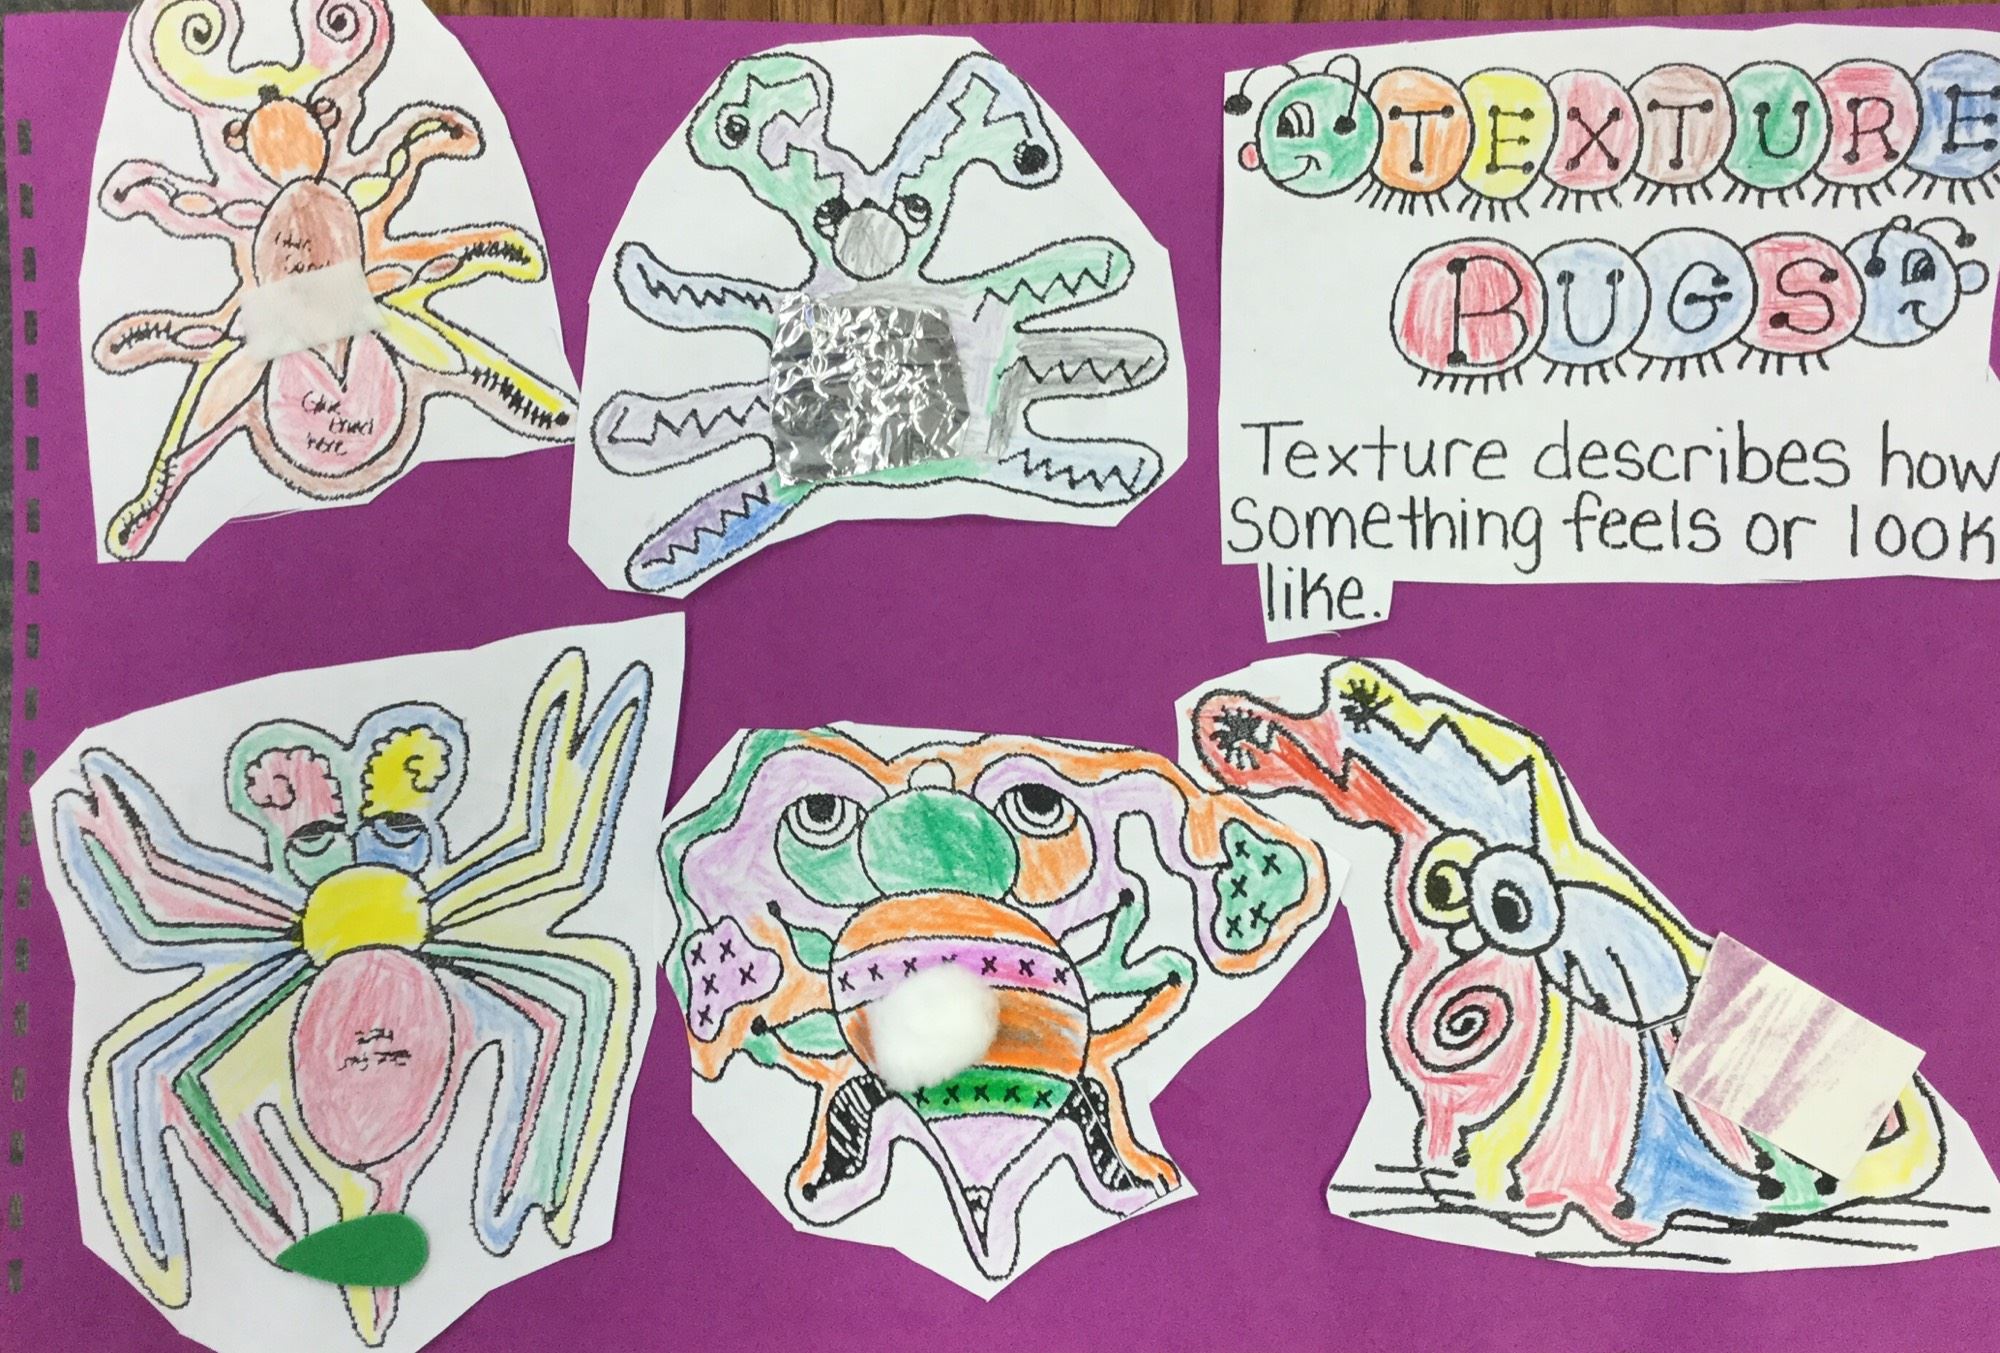 TEXTURE
BUGS
Texture describes how
something feels or look
like.
Glue
here